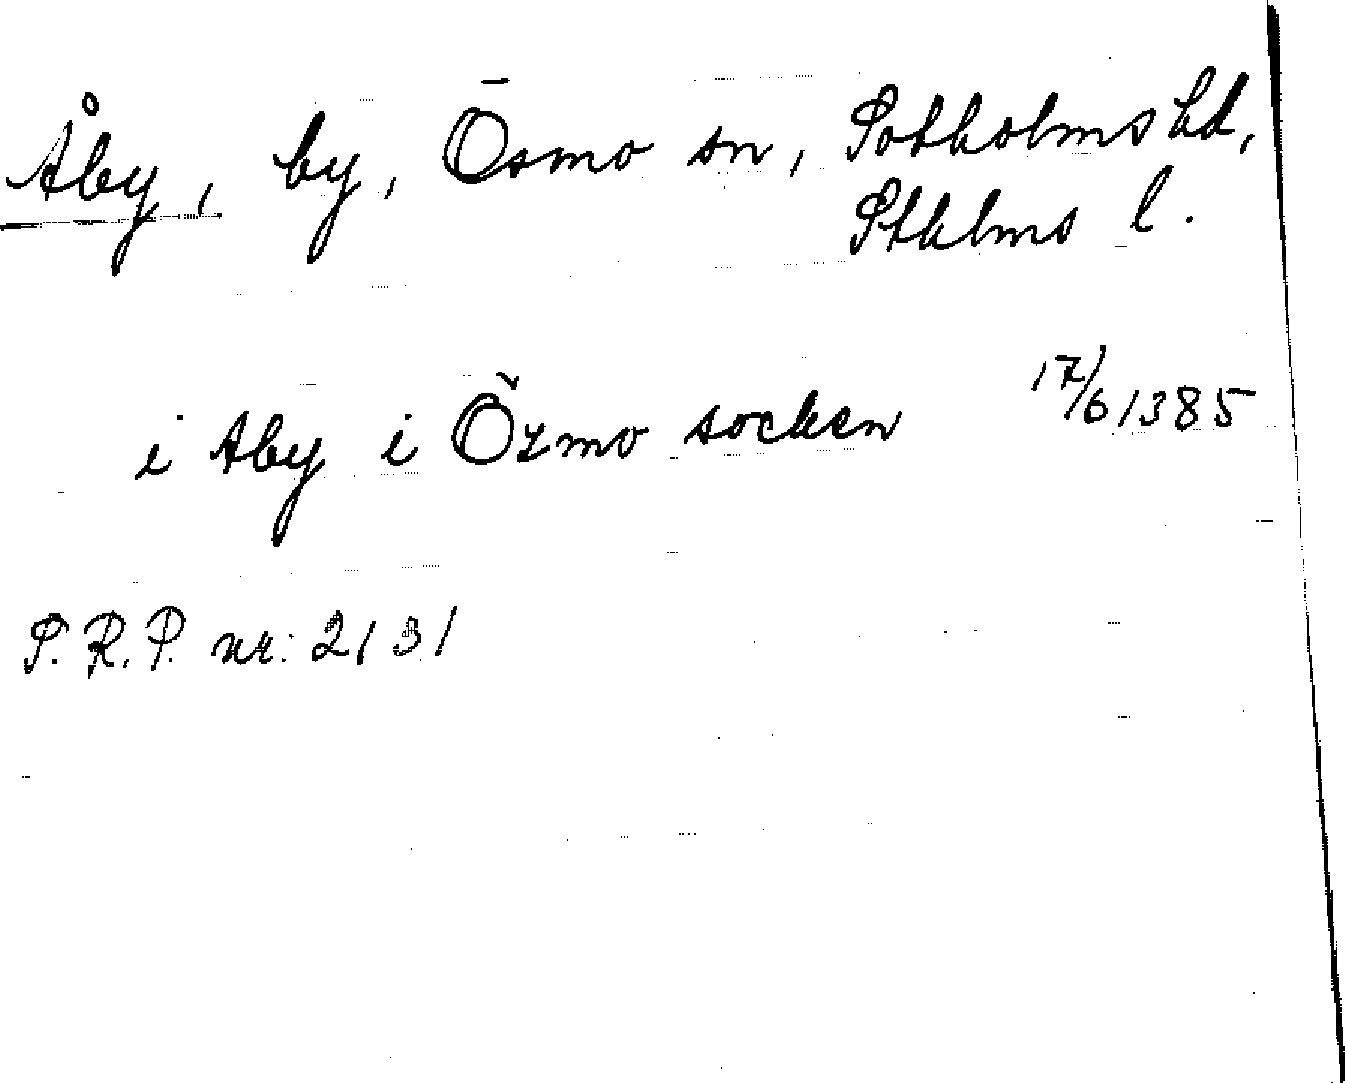 Åby, by, Ösmo sn, Sotholms hd,
Sthlms l.
i Aby i Özmo socken 17/6 1385
S.R.P. nr: 2131